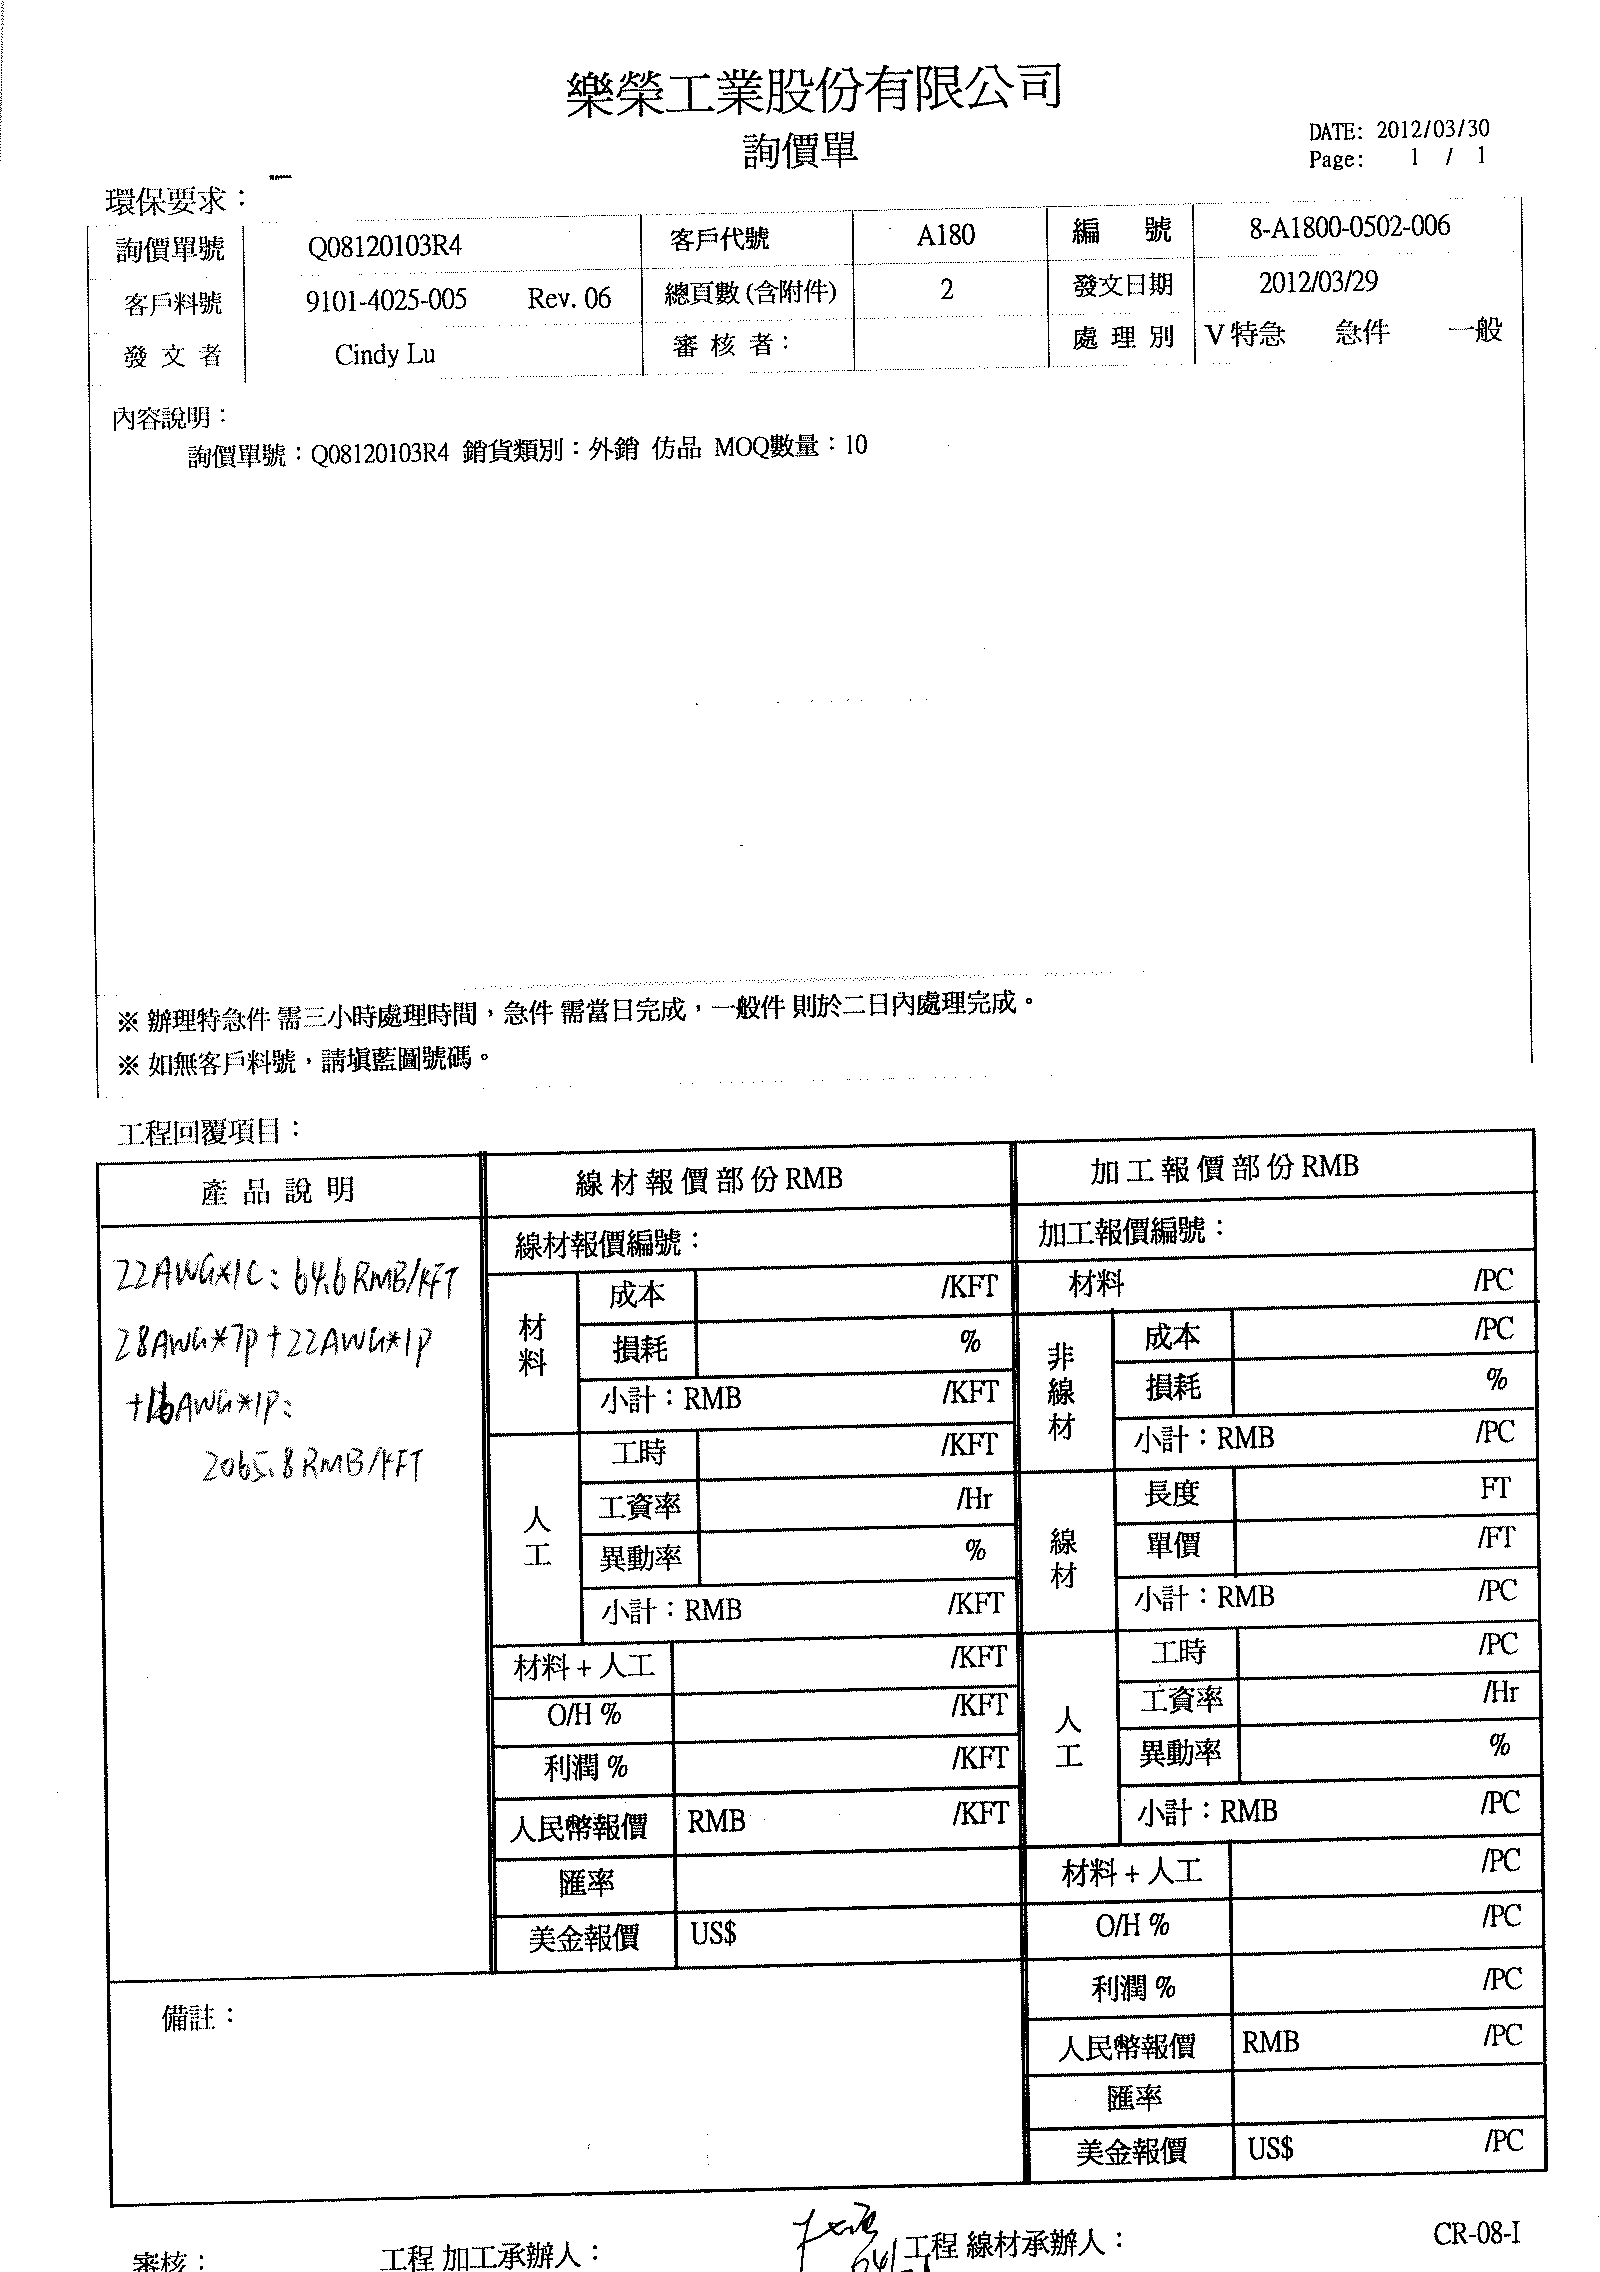 樂榮工業股份有限公司
詢價單
DATE: 2012/03/30
Page: 1 / 1
環保要求：
詢價單號 Q08120103R4 客戶代號 A180 編 號 8-A1800-0502-006
客戶料號 9101-4025-005 Rev. 06 總頁數(含附件) 2 發文日期 2012/03/29
發 文 者 Cindy Lu 審 核 者： 處 理 別 V 特急 急件 一般
內容說明：
詢價單號：Q08120103R4 銷貨類別：外銷 仿品 MOQ數量：10
※ 辦理特急件 需三小時處理時間，急件 需當日完成，一般件 則於二日內處理完成。
※ 如無客戶料號，請填藍圖號碼。
工程回覆項目：
產 品 說 明
22AWG*1C: 64.6RMB/KFT
28AWG*7P+22AWG*1P
+16AWG*1P:
2065.8RMB/KFT
線材報價部份RMB
線材報價編號：
材料
成本 /KFT
損耗 %
小計：RMB /KFT
人工
工時 /KFT
工資率 /Hr
異動率 %
小計：RMB /KFT
材料 + 人工 /KFT
O/H % /KFT
利潤 % /KFT
人民幣報價 RMB /KFT
匯率
美金報價 US$
加工報價部份RMB
加工報價編號：
材料 /PC
非線材
成本 /PC
損耗 %
小計：RMB /PC
線材
長度 FT
單價 /FT
小計：RMB /PC
人工
工時 /PC
工資率 /Hr
異動率 %
小計：RMB /PC
材料 + 人工 /PC
O/H % /PC
利潤 % /PC
人民幣報價 RMB /PC
匯率
美金報價 US$ /PC
備註：
審核： 工程 加工承辦人： 工程 線材承辦人： CR-08-I